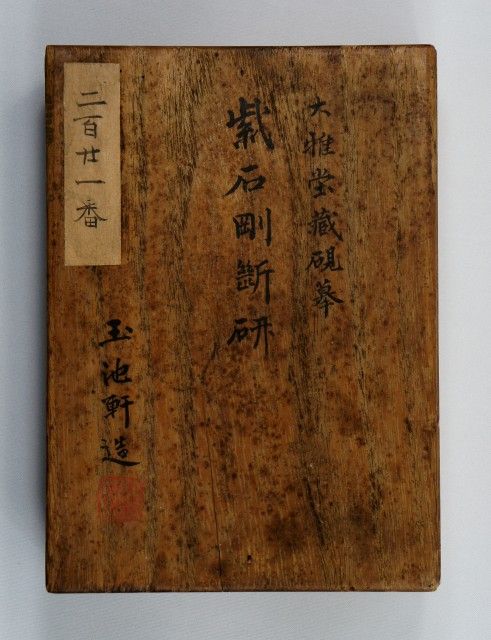 大雅堂藏硯摹
紫石剛斷研
二百廿一番
玉池軒造